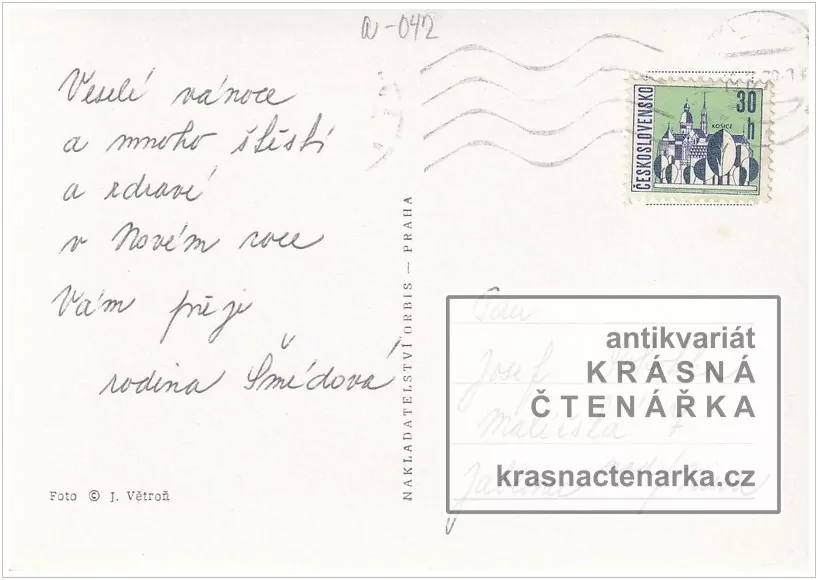 a-042
Veselé vánoce
a mnoho štěstí
a zdraví
v Novém roce
Vám přeje
rodina Šmídová
Foto © J. Větroň
NAKLADATELSTVÍ ORBIS — PRAHA
ČESKOSLOVENSKO
30
h
KOŠICE
Pan
Josef
antikvariát
KRÁSNÁ
ČTENÁŘKA
krasnactenarka.cz